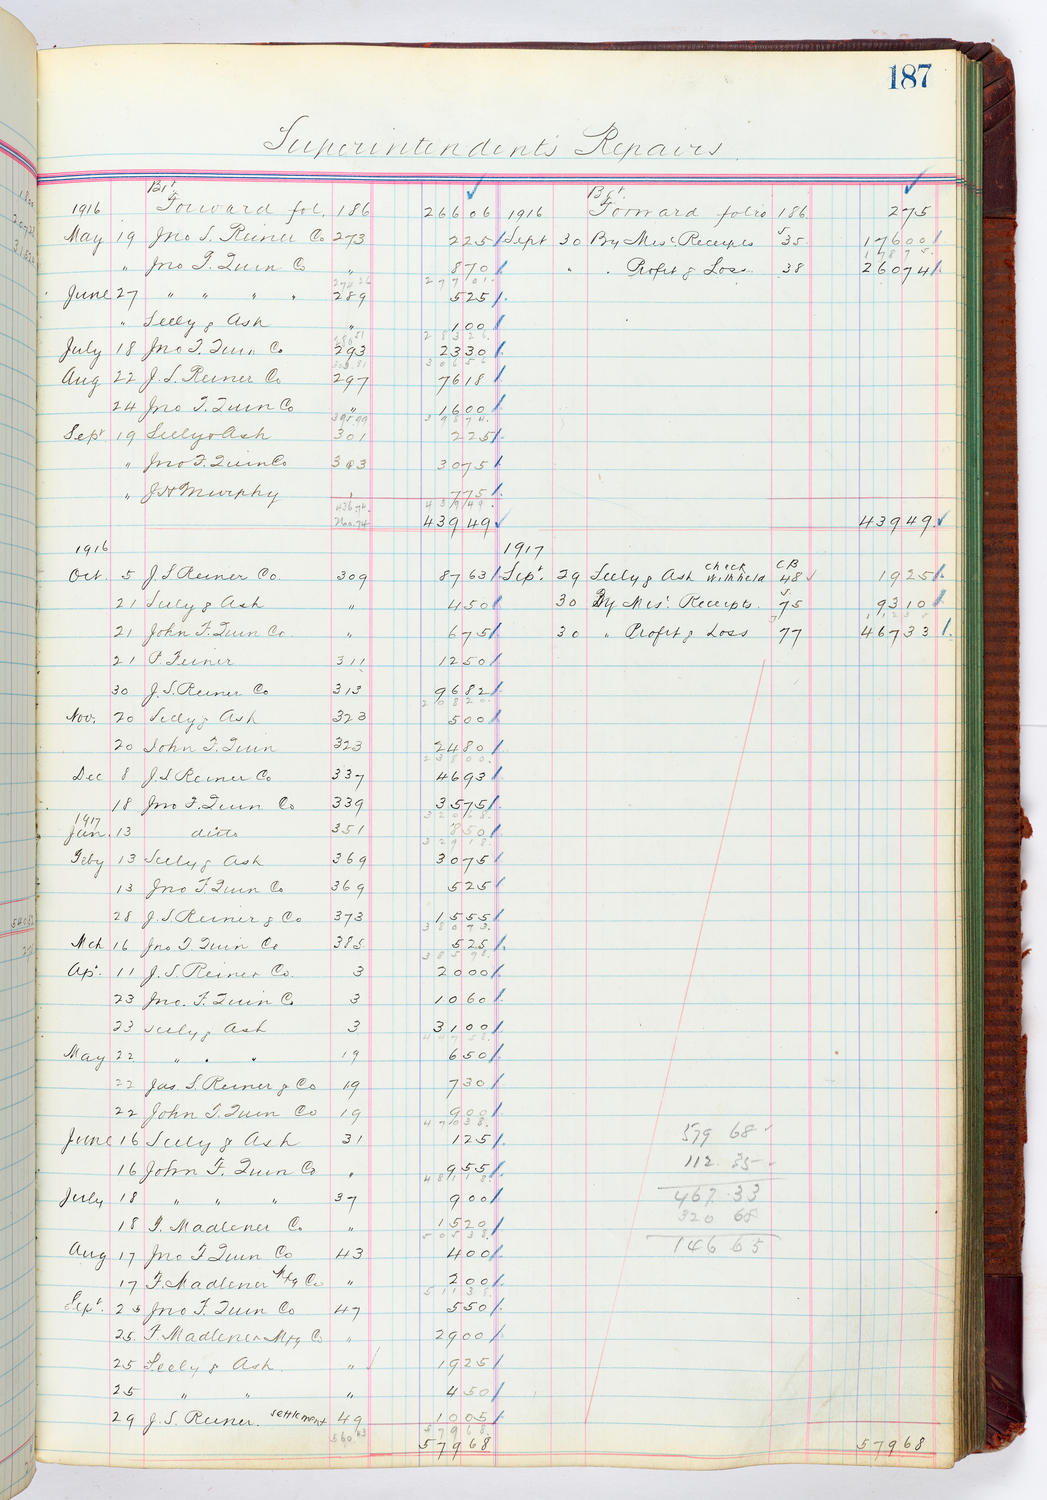 187
Superintendents Repairs
Bt. Bt.
1916 Forward fol. 186 266 06 1916 Forward folio 186 2 75
May 19 Jno S. Reiner Co 273 2 25 Sept 30 By Mis. Receipts 35 176 00
" Jno F. Quin Co " 8 70 " " Profit & Loss 38 260 74
277 01
June 27 " " " " 289 5 25
" Seely & Ash " 1 00
283 26
July 18 Jno F. Quin Co 293 23 30
306 56
Aug 22 J. S. Reiner Co 297 76 18
24 Jno F. Quin Co " 16 00
398 74
Sept 19 Seely & Ash 301 2 25
" Jno F. Quin Co 303 30 75
" J H Murphy " 7 75
439 49
439 49 439 49
1916 1917
Oct. 5 J. S. Reiner Co. 309 87 63 Sept. 29 Seely & Ash check withheld CB 48 19 25
21 Seely & Ash " 4 50 30 By Mis. Receipts. 75 93 10
21 John F. Quin Co " 6 75 30 " Profit & Loss 77 467 33
21 P. Feiner 311 12 50
30 J. S. Reiner Co 313 96 82
208 20
Nov. 20 Seely & Ash 323 5 00
20 John F. Quin 323 24 80
238 00
Dec 8 J. S. Reiner Co 337 46 93
18 Jno F. Quin Co 339 35 75
320 68
1917
Jan. 13 ditto 351 8 50
329 18
Feby 13 Seely & Ash 369 30 75
13 Jno F. Quin Co 369 5 25
28 J. S. Reiner & Co 373 15 55
380 73
Mch 16 Jno F. Quin Co 385 5 25
385 98
Ap. 11 J. S. Reiner Co. 3 20 00
23 Jno. F. Quin Co 3 10 60
23 Seely & Ash 3 31 00
447 58
May 22 " " " 19 6 50
22 Jas. S. Reiner & Co 19 7 30
22 John F. Quin Co 19 9 00
470 38
June 16 Seely & Ash 31 1 25 579 68
16 John F. Quin Co " 9 55 112 35
481 18
July 18 " " " 37 9 00 467 33
18 F. Madlener Co. " 15 20 320 68
505 38
Aug 17 Jno F Quin Co 43 4 00 146 65
17 F. Madlener Mfg Co " 2 00
511 38
Sept. 25 Jno F. Quin Co 47 5 50
25 F. Madlener Mfg Co " 29 00
25 Seely & Ash. " 19 25
25 " " " 4 50
29 J. S. Reiner. settlement 49 10 05
579 68
579 68 579 68